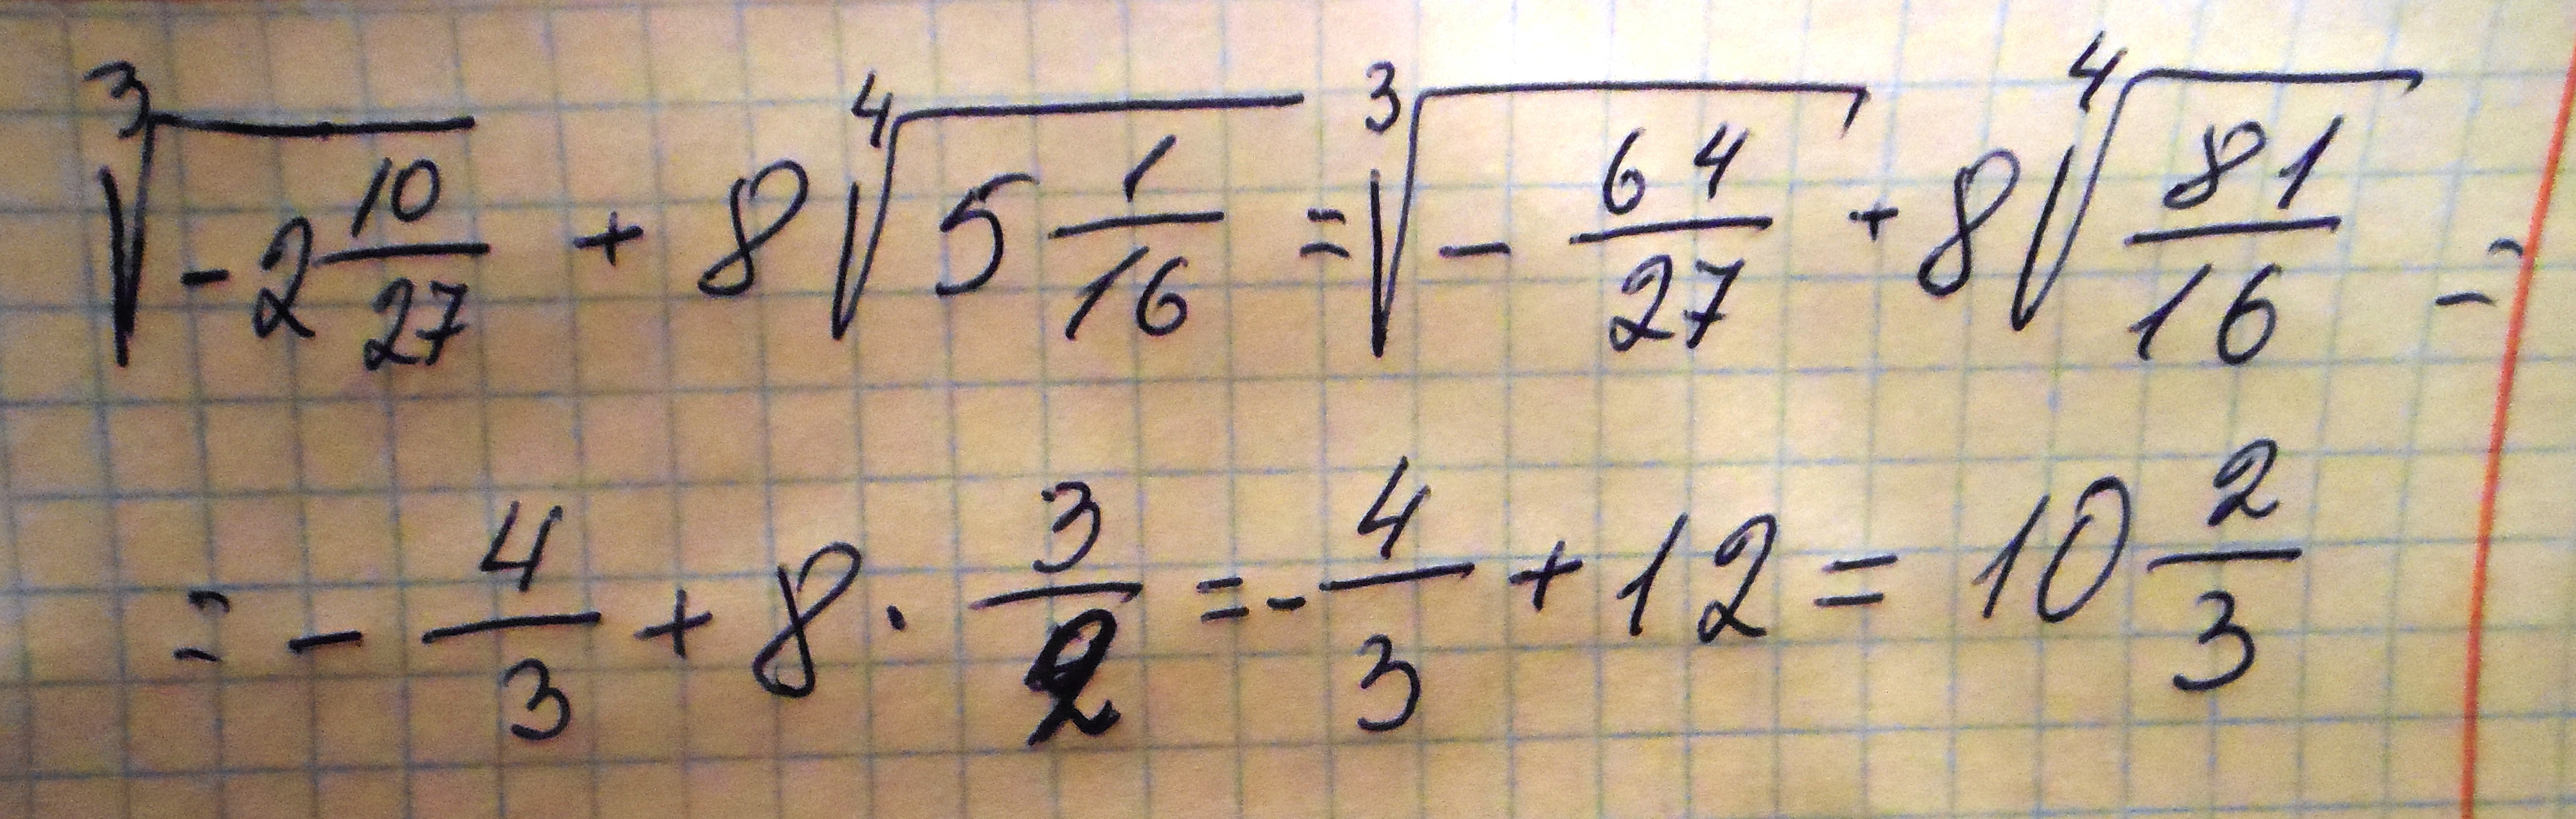 ∛(-2 10/27) + 8 ∜(5 1/16) = ∛(- 64/27) + 8 ∜(81/16) =
= - 4/3 + 8 · 3/2 = - 4/3 + 12 = 10 2/3